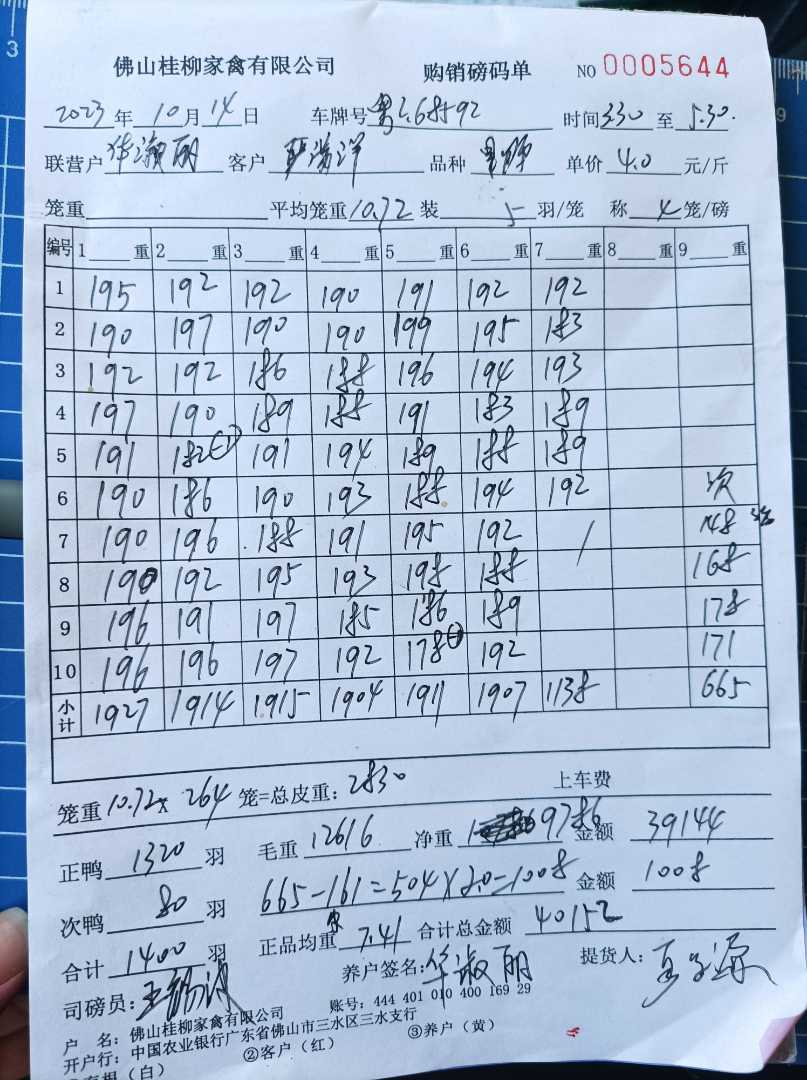 佛山桂柳家禽有限公司 购销磅码单 NO 0005644
2023年10月14日 车牌号粤 68592 时间330至5.30.
联营户华淑丽 客户 品种 单价4.0元/斤
笼重 平均笼重10.72装5羽/笼 称4笼/磅
编号 1重 2重 3重 4重 5重 6重 7重 8重 9重
1 195 192 192 190 191 192 192
2 190 197 190 190 199 195 183
3 192 192 186 188 196 194 193
4 197 190 189 188 191 183 189
5 191 182 191 194 189 188 189
6 190 186 190 193 188 194 192 次
7 190 196 188 191 195 192 / 148
8 190 192 195 193 198 188 168
9 196 191 197 185 186 189 178
10 196 196 197 192 178 192 171
小计 1927 1914 1915 1904 1911 1907 1138 665
笼重10.72×264笼=总皮重:2830 上车费
正鸭1320羽 毛重12616 净重9786 金额39144
次鸭80羽 665-161=504×2.0=1008 金额1008
合计1400羽 正品均重7.41 合计总金额40152
司磅员: 养户签名:华淑丽 提货人:
户 名:佛山桂柳家禽有限公司 账号:444 401 010 400 169 29
开户行:中国农业银行广东省佛山市三水区三水支行
(白) ②客户(红) ③养户(黄)